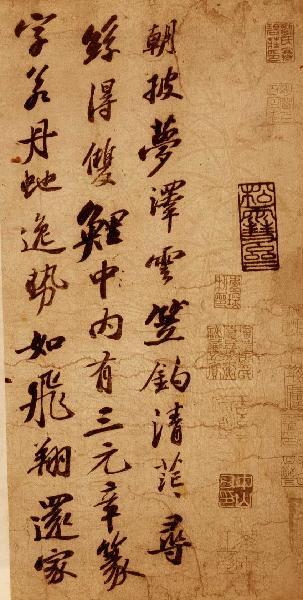 朝披夢澤雲笠釣清茫〻尋
絲得雙鯉中內有三元章篆
字若丹虵逸勢如飛翔還家